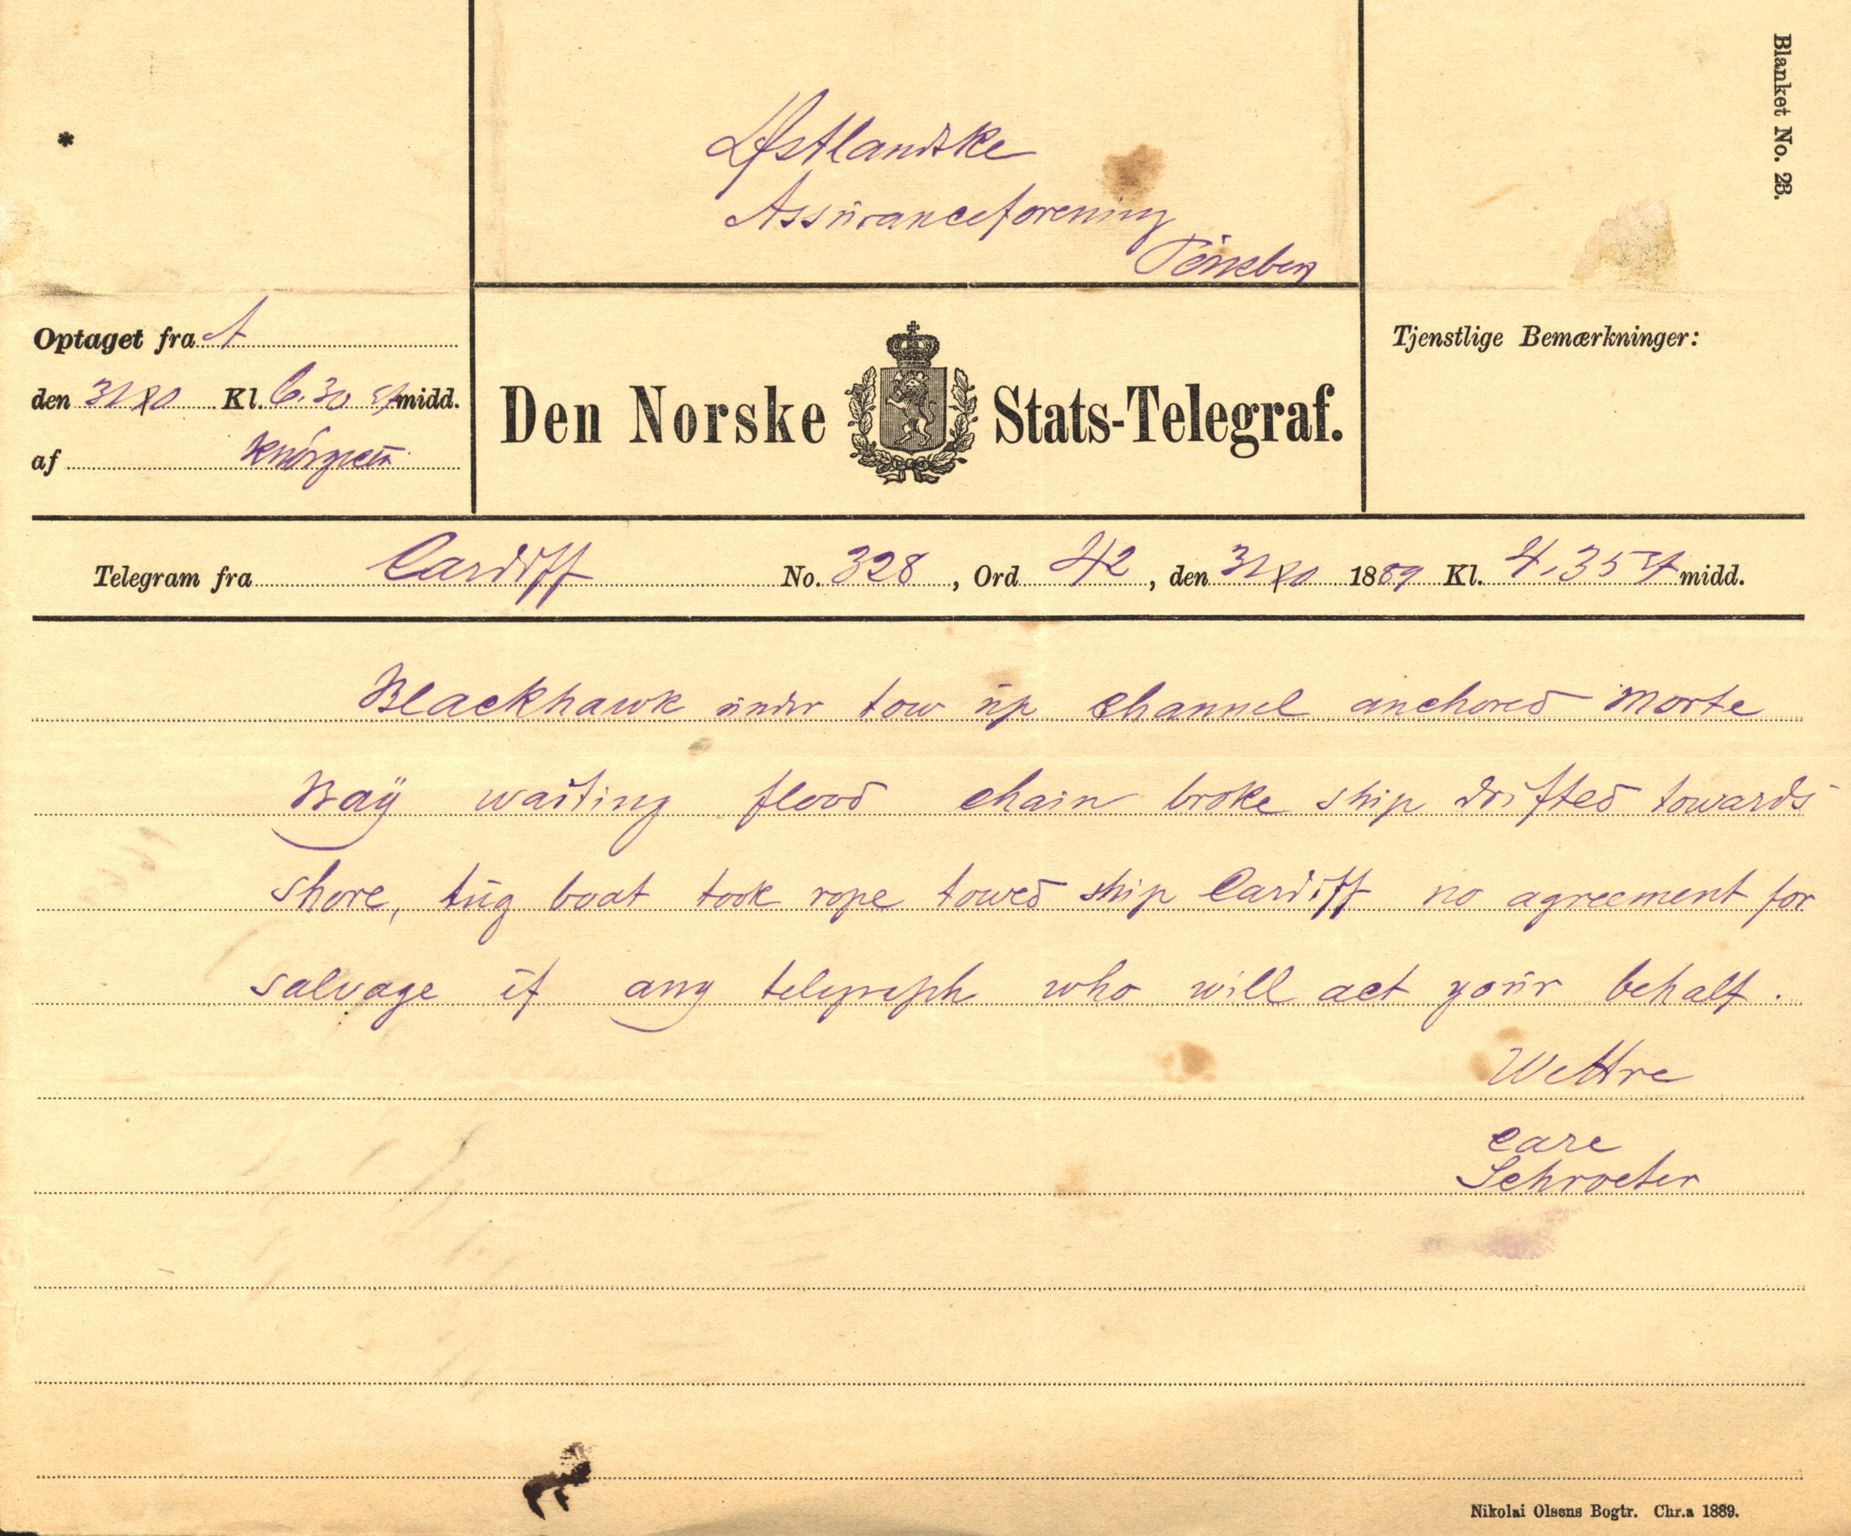 Blanket No. 23.
Østlandske
Assuranceforening
Tönsberg
*
Optaget fra A
den 31/10 Kl. 6.30 Ef midd.
af
Den Norske Stats-Telegraf.
Tjenstlige Bemærkninger:
Telegram fra Cardiff No. 328, Ord 42, den 31/10 1889 Kl. 4.35 Ef midd.
Blackhawk under tow up channel anchored Morte
Bay waiting flood chain broke ship drifted towards
shore, tug boat took rope towed ship Cardiff no agreement for
salvage if any telegraph who will act your behalf.
Wettre
care
Schroeter
Nikolai Olsens Bogtr. Chr.a 1889.